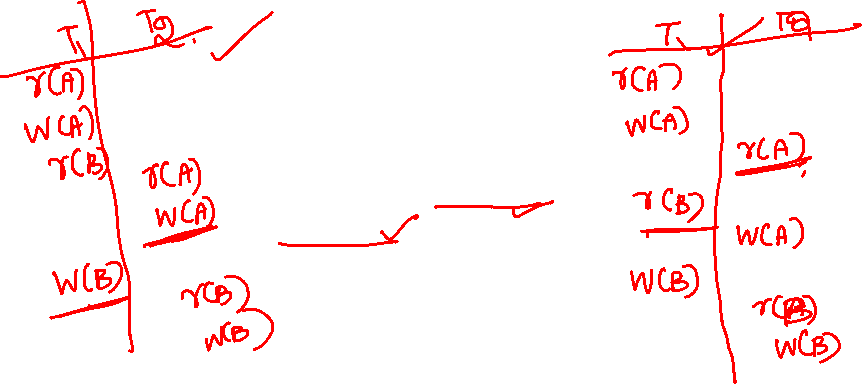 T1 T2
r(A)
W(A)
r(B)
r(A)
W(A)
W(B)
r(B)
W(B)
T1 T2
r(A)
W(A)
r(A)
r(B)
W(A)
W(B)
r(B)
W(B)